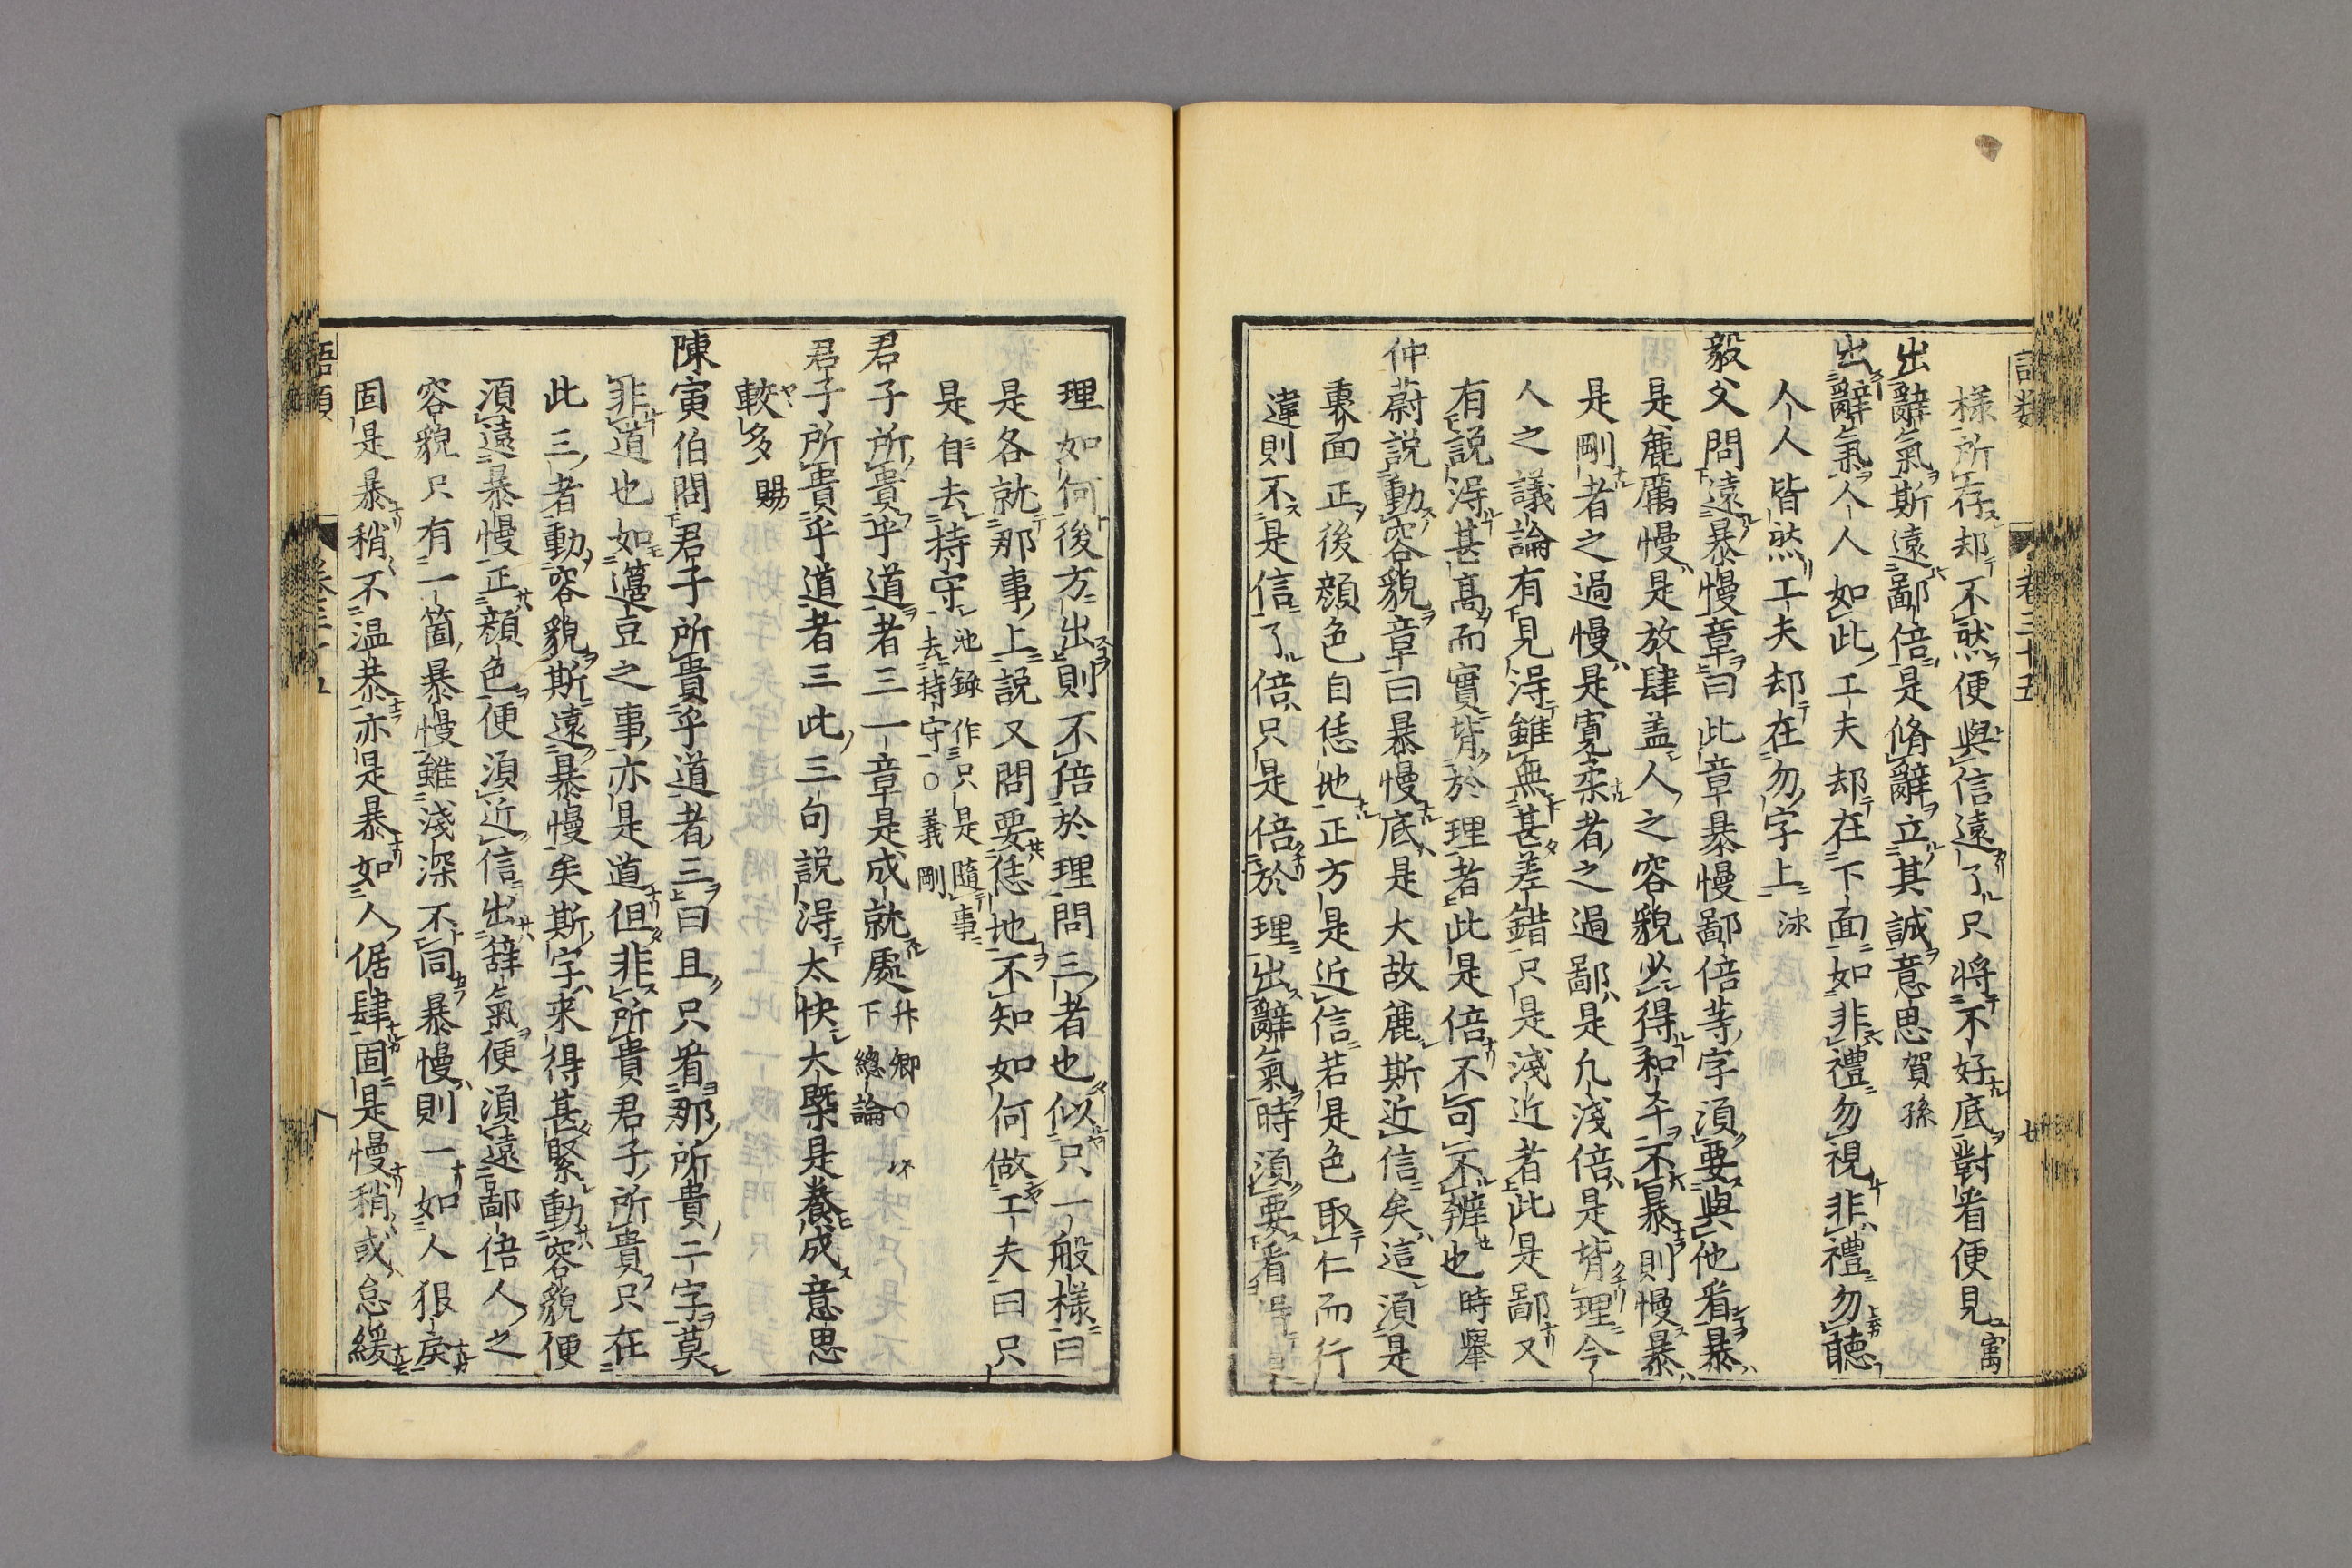 樣所存却不然便與信遠了只將不好底對看便見㝢
出辭氣斯遠鄙倍是脩辭立其誠意思賀孫
出辭氣人人如此工夫却在下面如非禮勿視非禮勿聽
人人皆然工夫却在勿字上泳
毅父問遠暴慢章曰此章暴慢鄙倍等字須要與他看暴
是麄厲慢是放肆盖人之容貌少得和平不暴則慢暴
是剛者之過慢是寬柔者之過鄙是凡淺倍是背理今
人之議論有見得雖無甚差錯只是淺近者此是鄙又
有説得甚高而實背於理者此是倍不可不辨也時舉
仲蔚説動容貌章曰暴慢底是大故麄斯近信矣這須是
裏面正後顔色自恁地正方是近信若是色取仁而行
違則不是信了倍只是倍於理出辭氣時須要看得
卷三十五
理如何後方出則不倍於理問三者也似只一般樣曰
是各就那事上説又問要恁地不知如何做工夫曰只
是自去持守池録作只是隨事去持守○義剛
君子所貴乎道者三一章是成就處升卿○下總論
君子所貴乎道者三此三句説得太快大槩是養成意思
較多賜
陳寅伯問君子所貴乎道者三曰且只看那所貴二字莫
非道也如籩豆之事亦是道但非所貴君子所貴只在
此三者動容貌斯遠暴慢矣斯字来得甚緊動容貌便
須遠暴慢正顔色便須近信出辭氣便須遠鄙倍人之
容貌只有一箇暴慢雖淺深不同暴慢則一如人狠戾
固是暴稍不温恭亦是暴如人倨肆固是慢稍或怠緩